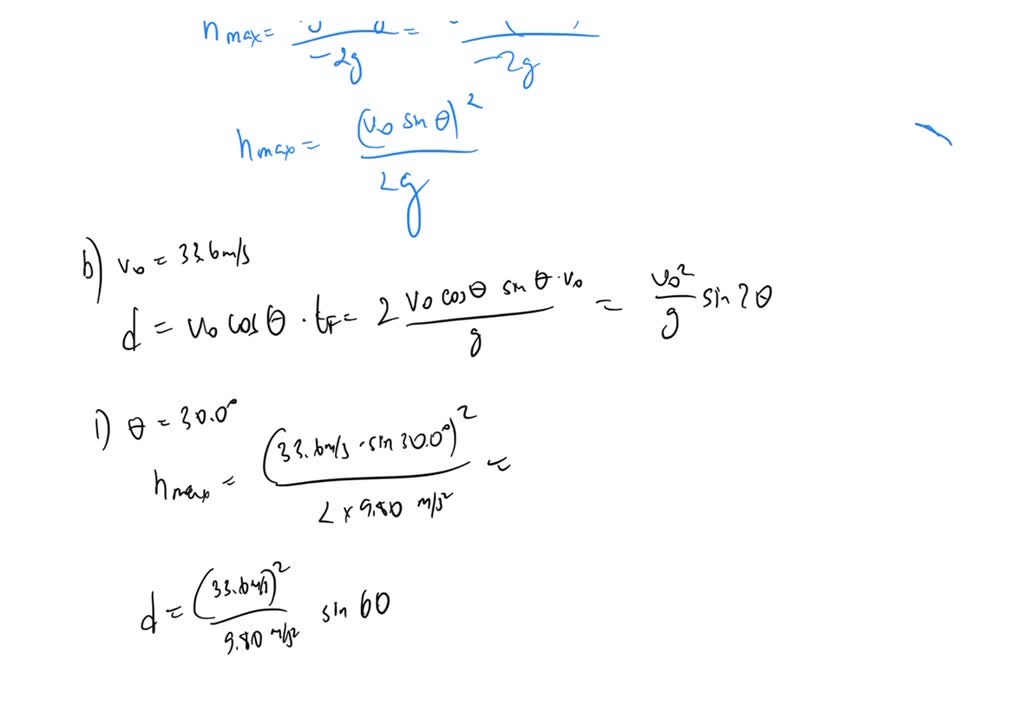 h max = / -2g = / -2g
h max = (v₀ sin θ)² / 2g
b) v₀ = 33.6 m/s
d = v₀ cos θ · t_F = 2 v₀ cos θ sin θ · v₀ / g = v₀² / g sin 2θ
1) θ = 30.0°
h max = (33.6 m/s · sin 30.0°)² / 2 × 9.80 m/s² =
d = (33.6 m/s)² / 9.80 m/s² sin 60